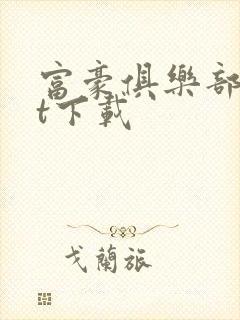 富豪俱樂部
t下載
戈蘭旅